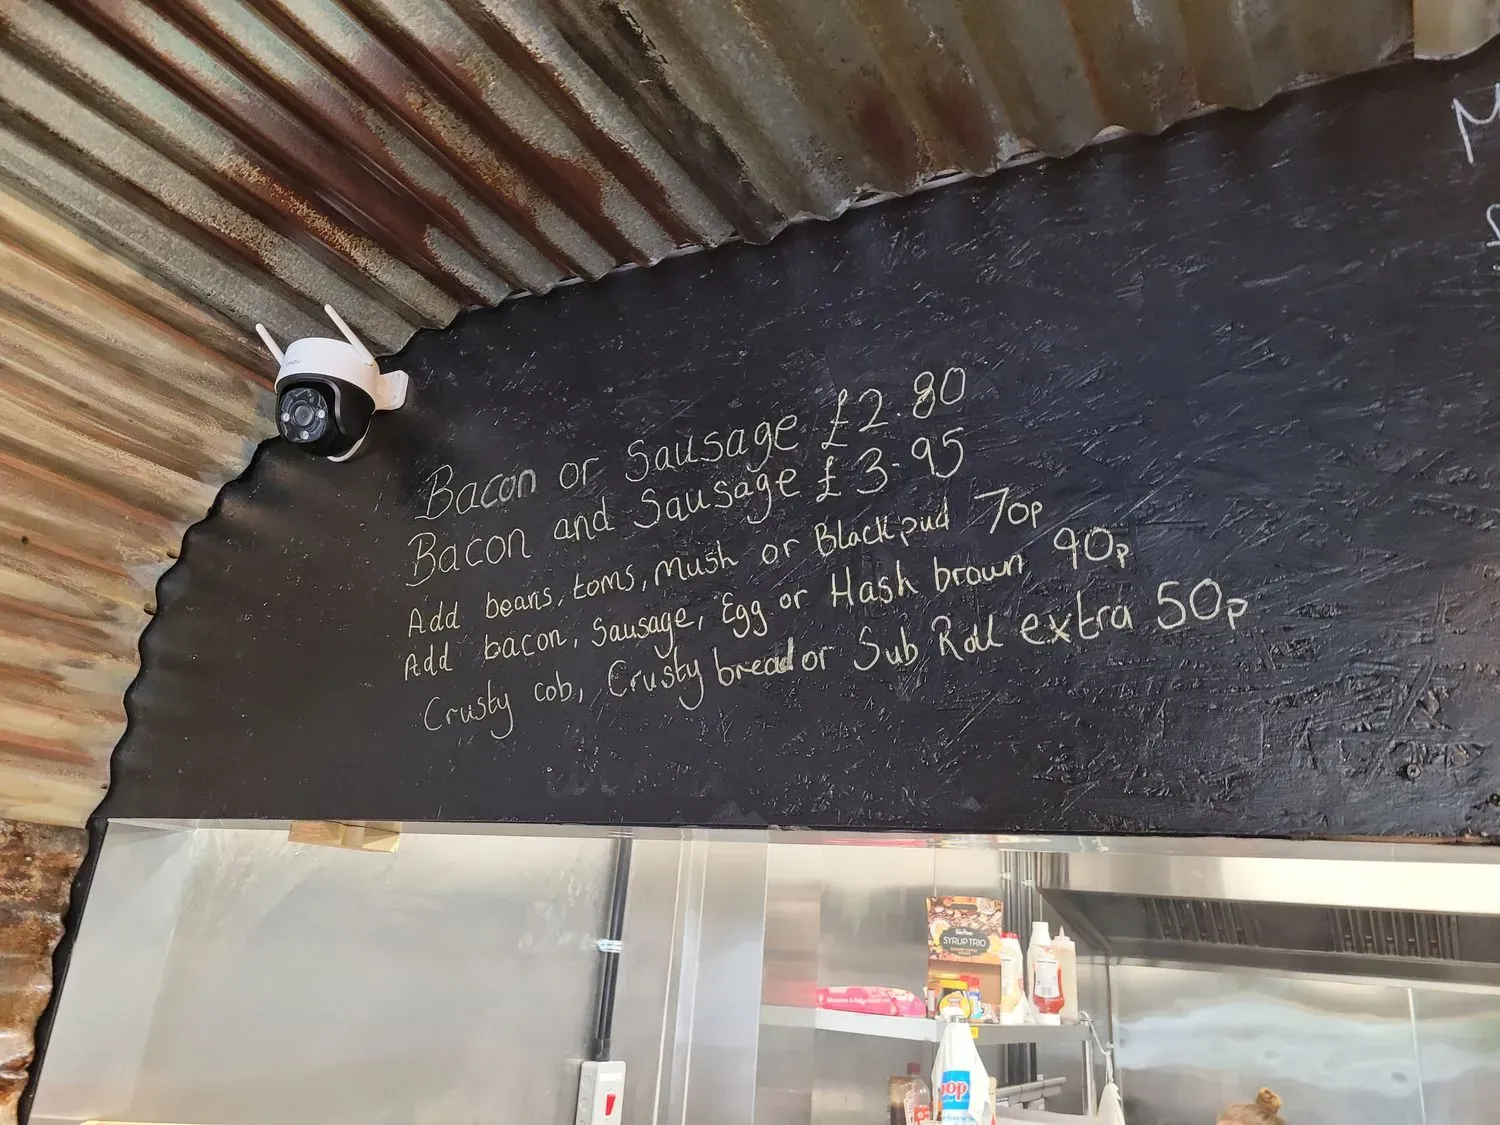 Bacon or Sausage £2.80
Bacon and Sausage £3.95
Add beans, toms, mush or Black pud 70p
Add bacon, Sausage, Egg or Hash brown 90p
Crusty cob, Crusty bread or Sub Roll extra 50p
SYRUP TRIO